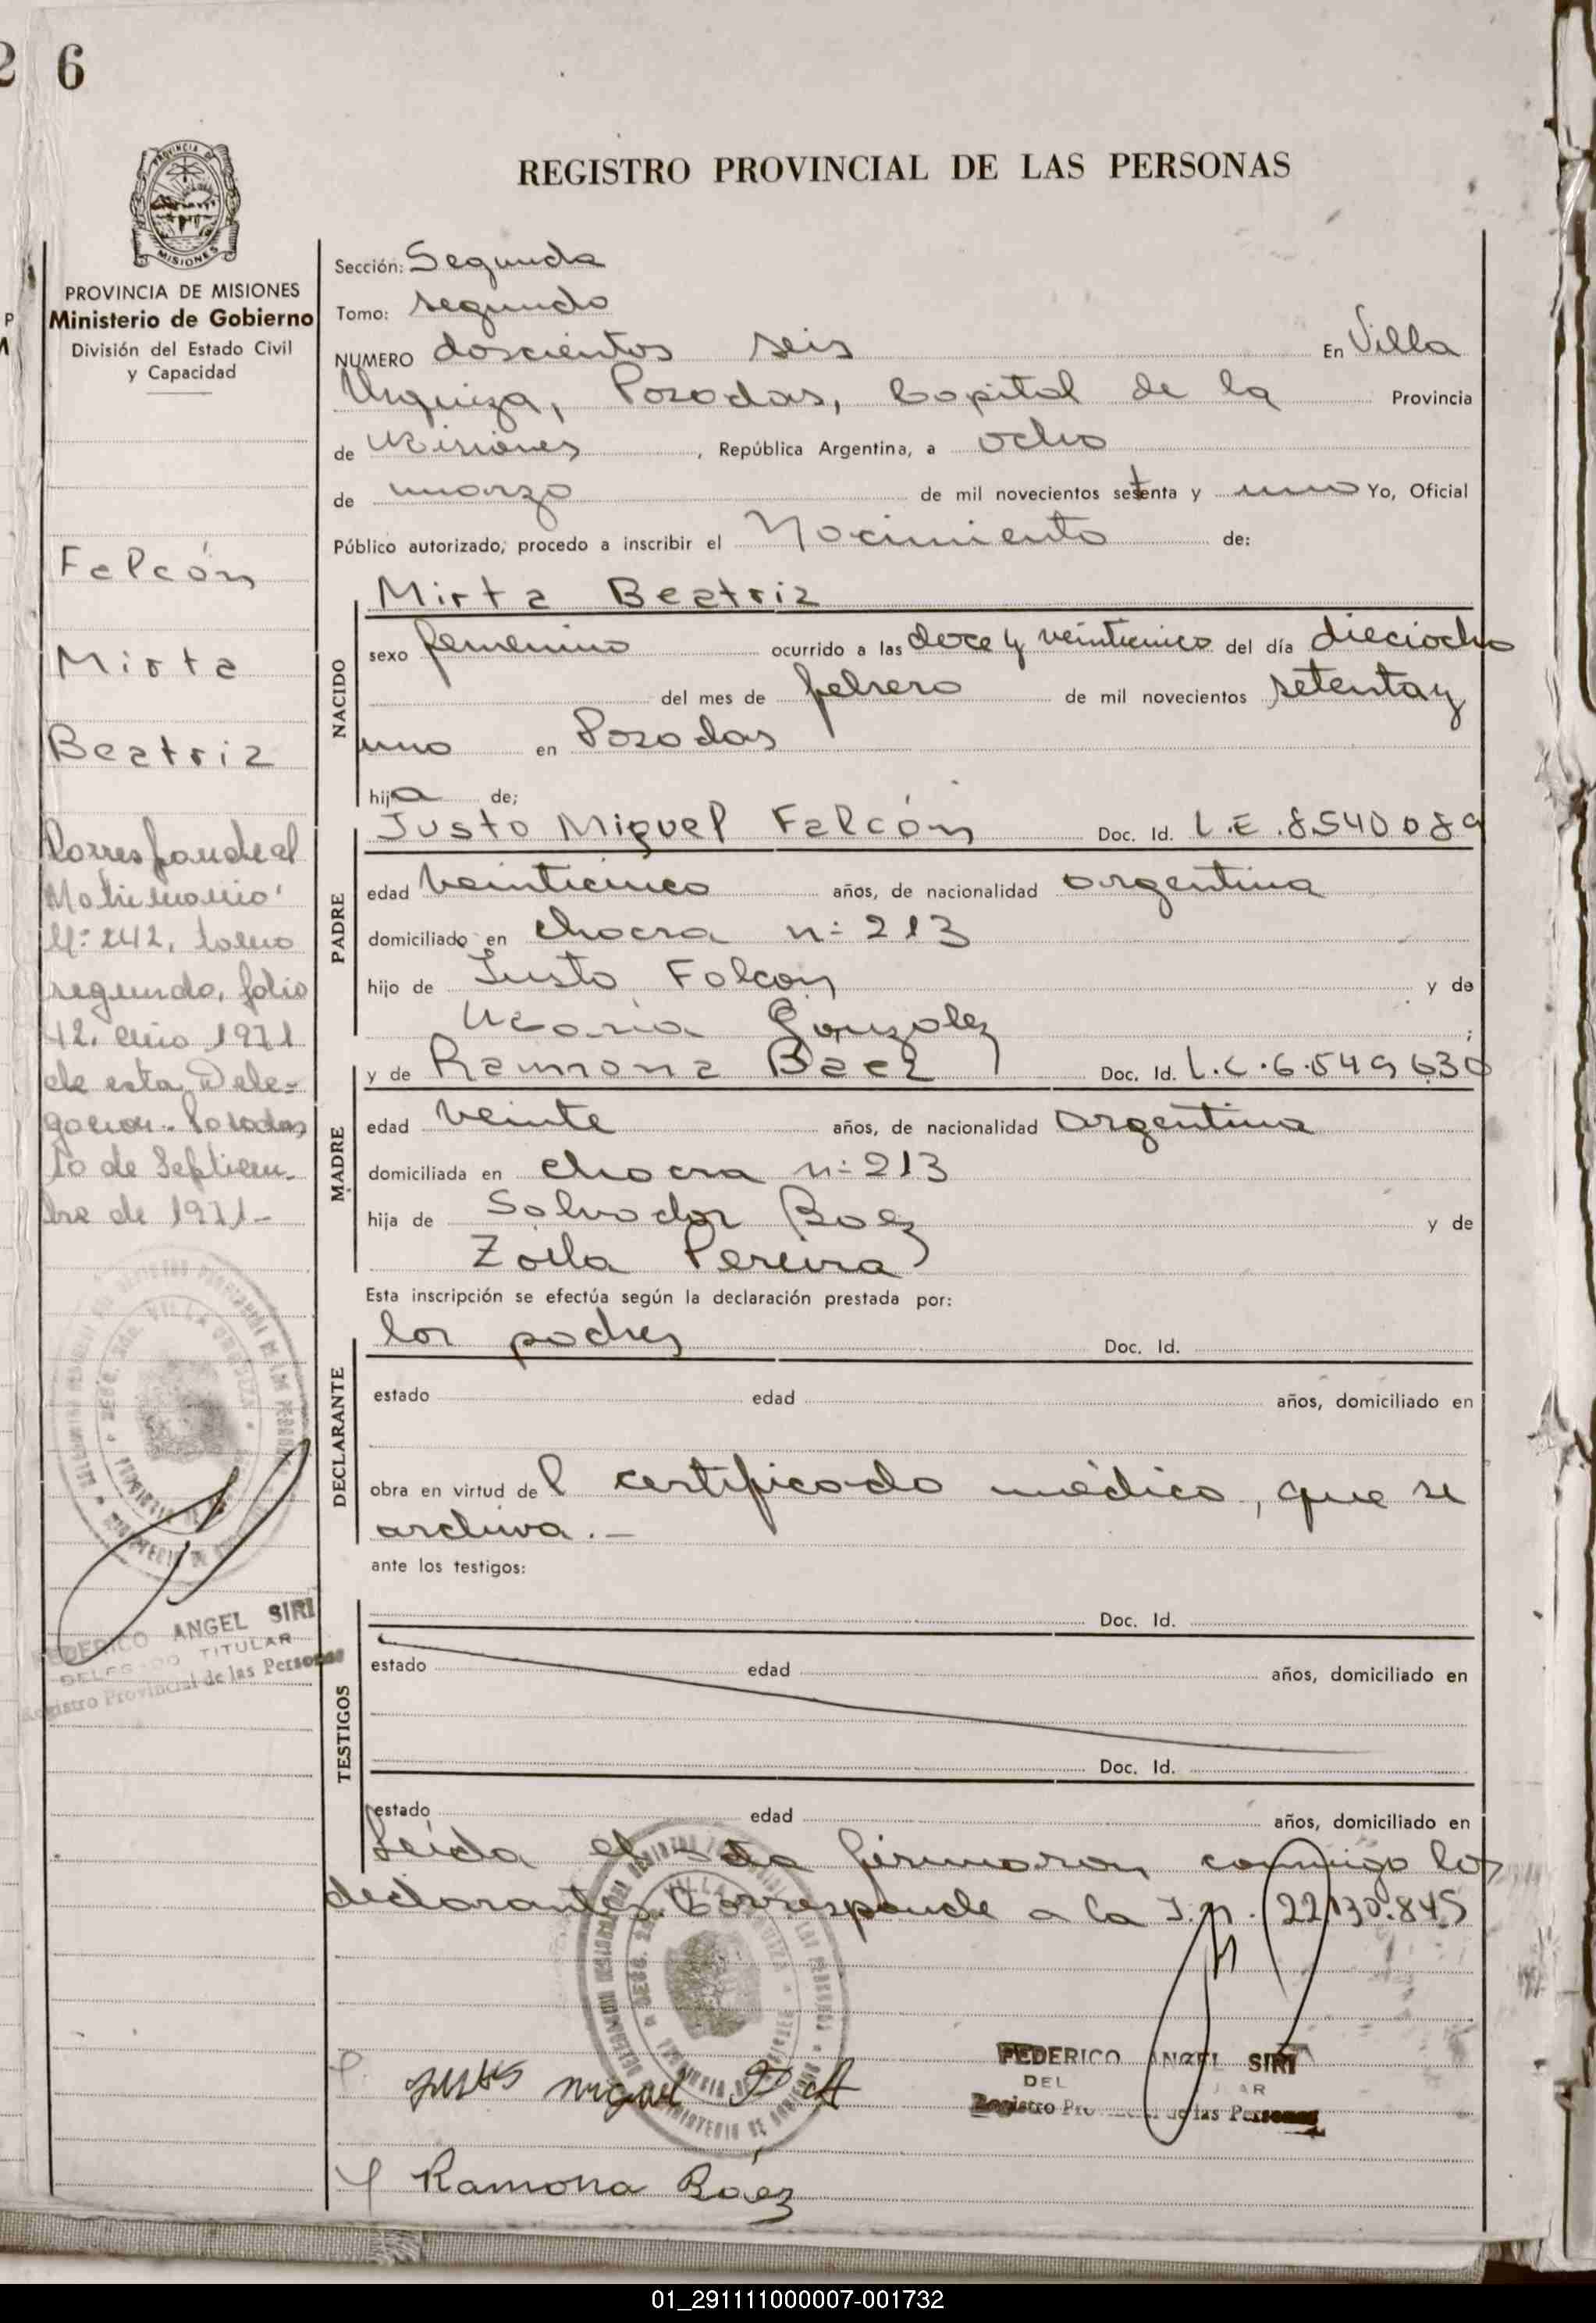 2 6
REGISTRO PROVINCIAL DE LAS PERSONAS
PROVINCIA DE MISIONES
Ministerio de Gobierno
División del Estado Civil
y Capacidad
Falcón
Mirta
Beatriz
Corresponde al
Matrimonio
Nº 242, tomo
segundo, folio
42. año 1971
de esta Dele-
gación. Posadas
10 de Septiem-
bre de 1971-
FEDERICO ANGEL SIRI
DELEGADO TITULAR
Registro Provincial de las Personas
Sección: Segunda
Tomo: segundo
NUMERO doscientos seis En Villa
Urquiza, Posadas, Capital de la Provincia
de Misiones, República Argentina, a ocho
de marzo de mil novecientos setenta y uno Yo, Oficial
Público autorizado, procedo a inscribir el Nacimiento de:
NACIDO
Mirta Beatriz
sexo femenino ocurrido a las doce y veinticinco del día dieciocho
del mes de febrero de mil novecientos setenta y
uno en Posadas
hija de;
PADRE
Justo Miguel Falcón Doc. Id. L.E. 8.540089
edad veinticinco años, de nacionalidad argentina
domiciliado en chacra nº 213
hijo de Justo Falcon y de
Maria Gonzalez ;
MADRE
y de Ramona Baez Doc. Id. L.C. 6.549630
edad veinte años, de nacionalidad argentina
domiciliada en chacra nº 213
hija de Salvador Baez y de
Zoila Pereira
Esta inscripción se efectúa según la declaración prestada por:
DECLARANTE
los padres Doc. Id.
estado edad años, domiciliado en
obra en virtud del certificado médico, que se
archiva.-
ante los testigos:
TESTIGOS
Doc. Id.
estado edad años, domiciliado en
Doc. Id.
estado edad años, domiciliado en
Leida el acta firmaron conmigo los
declarantes. Corresponde a la I.N. 22130.845
FEDERICO ANGEL SIRI
Registro Provincial de las Personas
Justo miguel
Ramona Báez
01_291111000007-001732